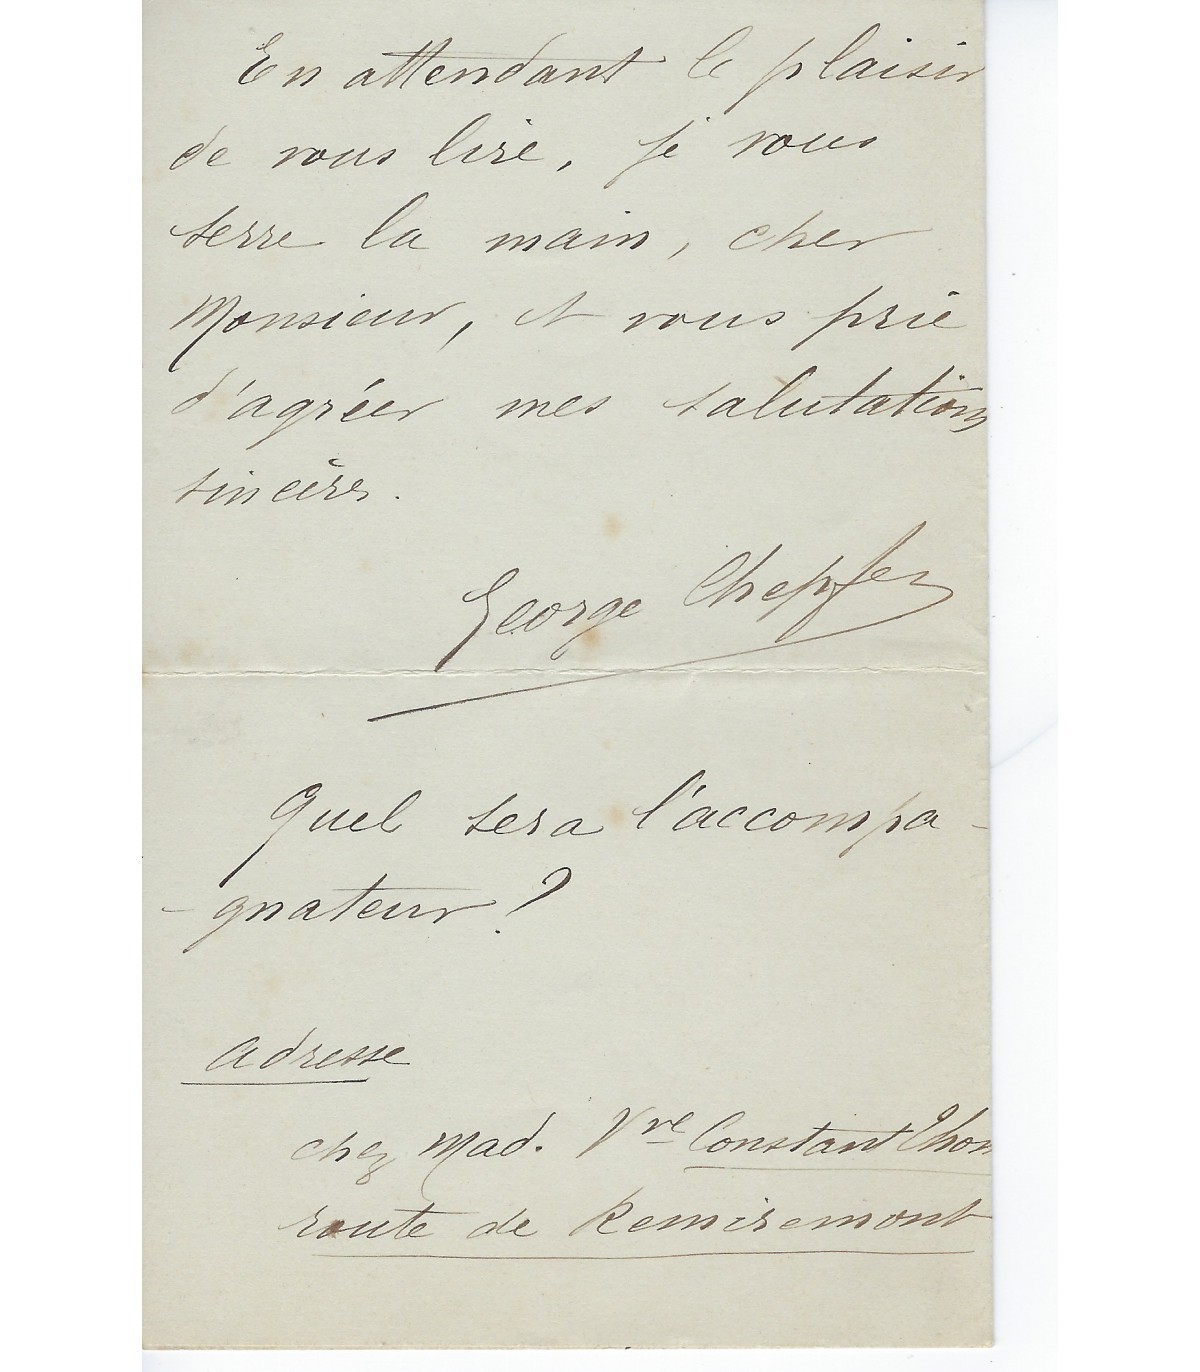 En attendant le plaisir
de vous lire, je vous
serre la main, cher
Monsieur, et vous prie
d'agréer mes salutations
sincères.
George Chepfer
Quel sera l'accompa-
-gnateur ?
adresse
chez Mad. Vve Constant Thom
route de Remiremont